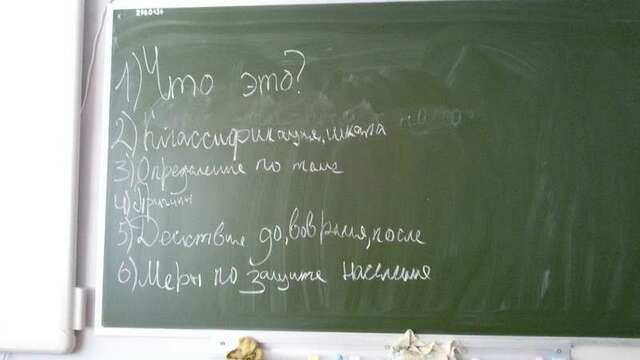 1) Что это?
2) Классификация, шкала
3) Определение по теме
4) Причины
5) Действие до, во время, после
6) Меры по защите населения